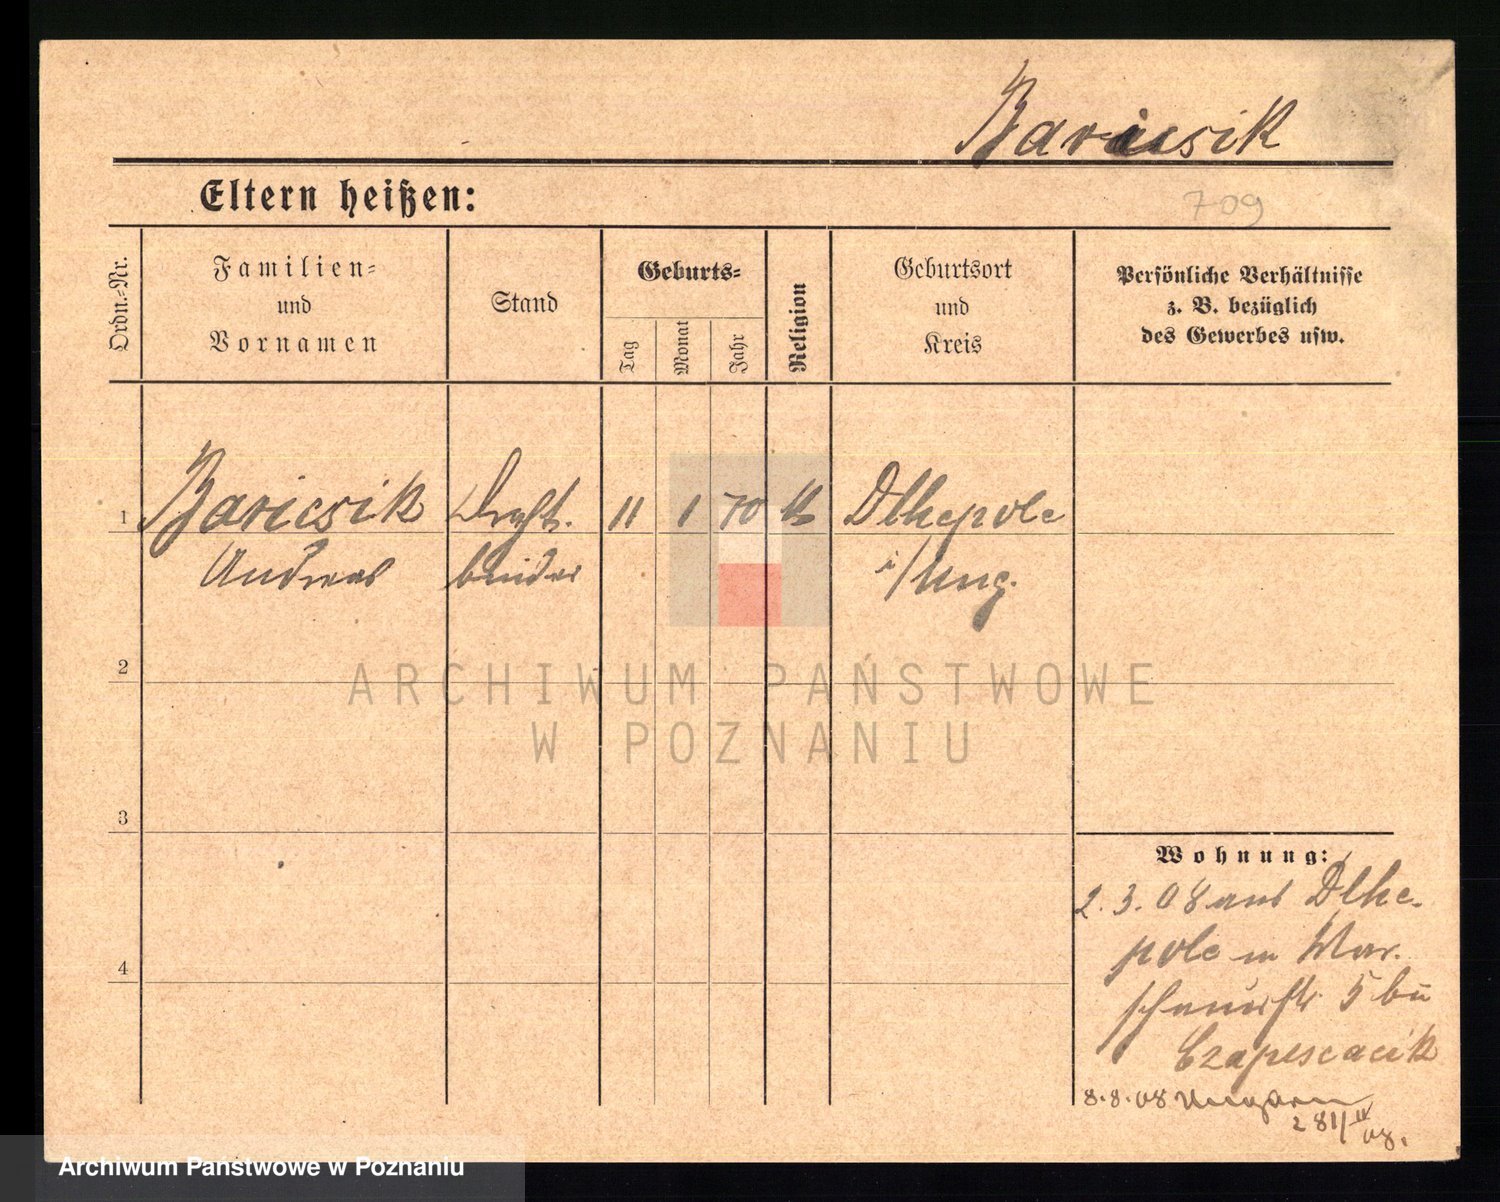 Baricsik
Eltern heißen:
709
Ordn.-Nr.
Familien-
und
Vornamen
Stand
Geburts-
Tag
Monat
Jahr
Religion
Geburtsort
und
Kreis
Persönliche Verhältnisse
z. B. bezüglich
des Gewerbes usw.
1
Baricsik
Andreas
Draht-
binder
11
1
70
Dlhepole
i/Ung.
2
ARCHIWUM PAŃSTWOWE
W POZNANIU
3
4
Wohnung:
2.3.08 aus Dlhe-
pole in War-
schauerstr. 5 bei
8.8.08 Ungarn
281/IV
08.
Archiwum Państwowe w Poznaniu